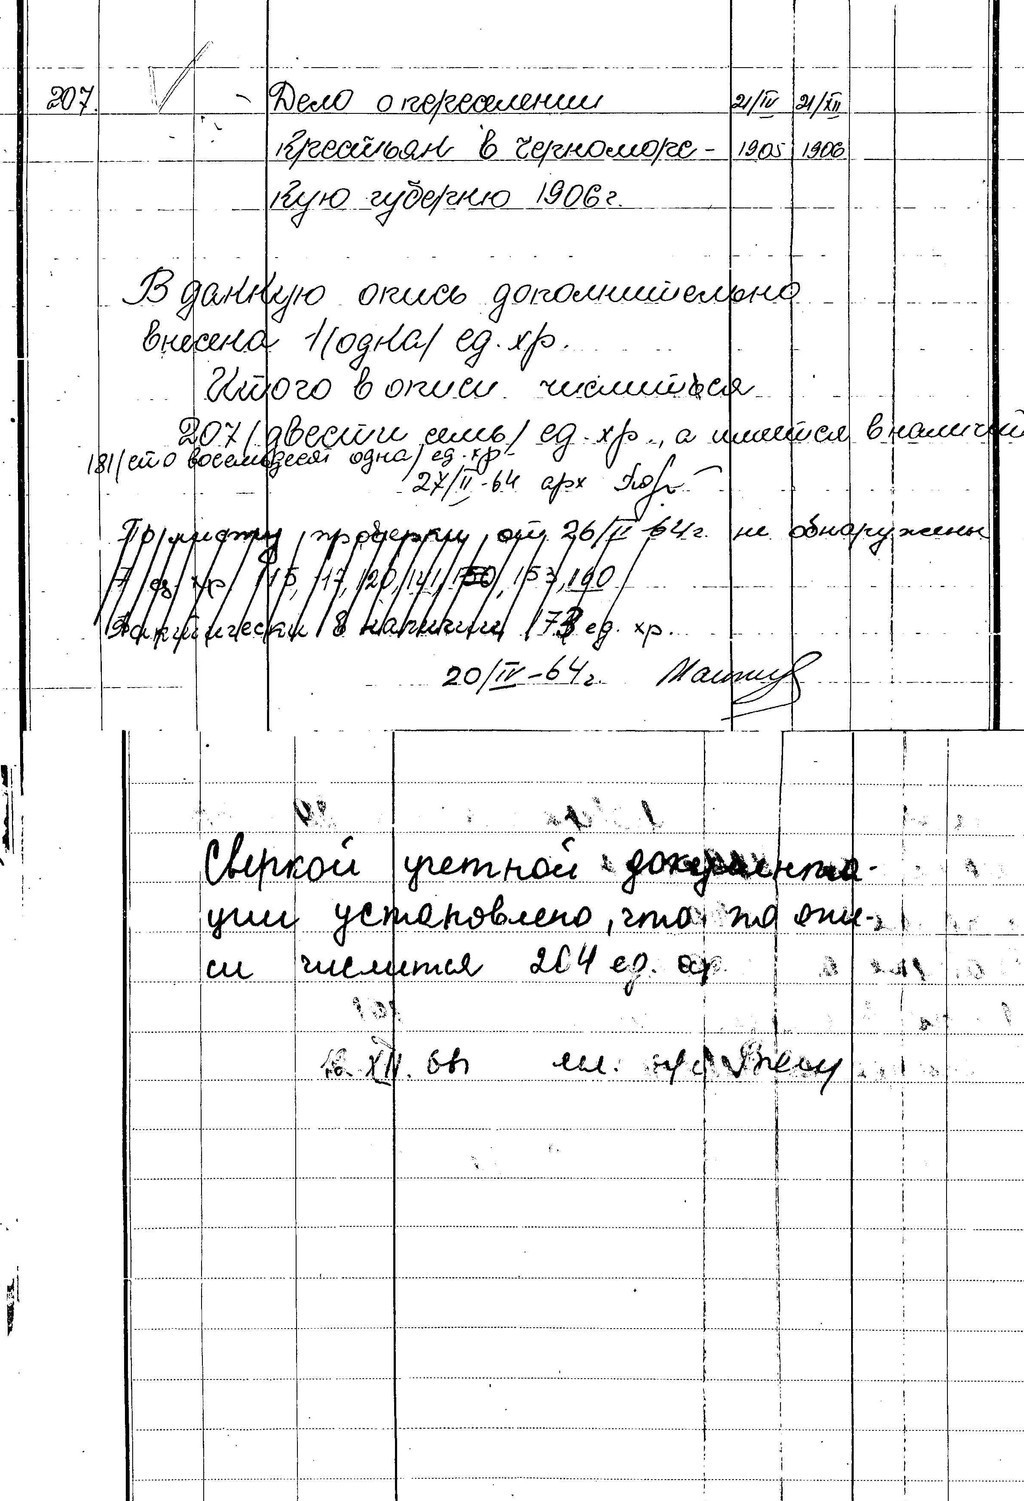 207. Дело о переселении 21/IV 21/XII
крестьян в черноморс- 1905 1906
кую губернию 1906 г.
В данную опись дополнительно
внесена 1 (одна) ед. хр.
Итого в описи числиться
207 /двести семь/ ед. хр., а имеется в наличии
181 /сто восемьдесят одна/ ед. хр.
27/II-64 арх
По листу проверки от 26/II-64г. не обнаружены
7 ед. хр. 115, 117, 120, 141, 150, 157, 190
Фактически в наличии 173 ед. хр.
20/IV-64г.
Сверкой учетной документа-
ции установлено, что по опи-
си числится 204 ед. хр
XII. мл.